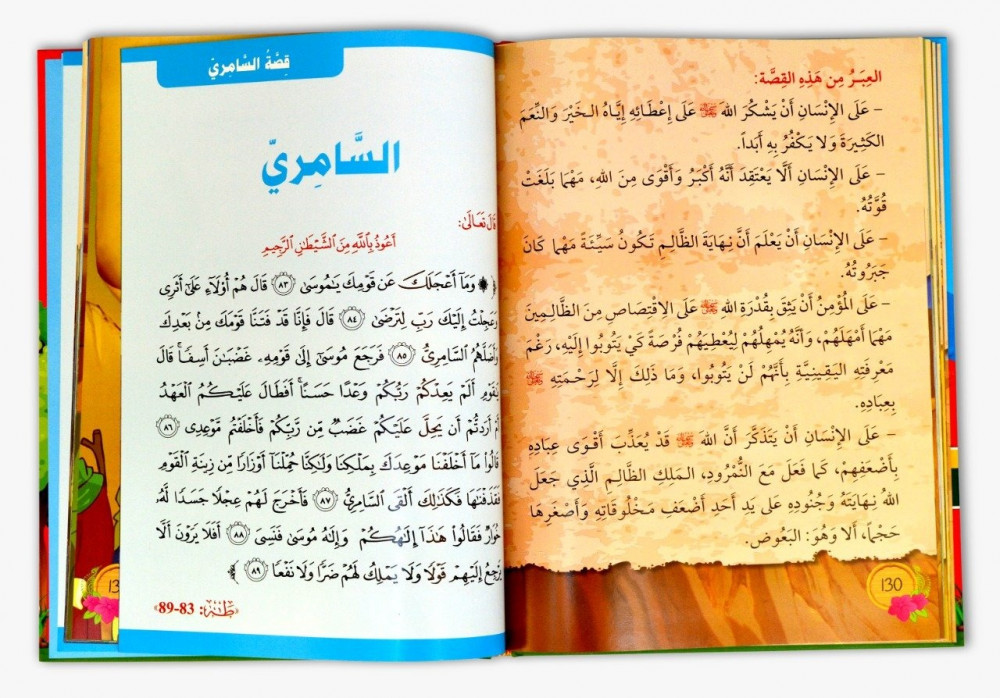 العِبَرُ مِن هَذِهِ القِصَّة:
– عَلَى الإِنْسَانِ أَنْ يَشْكُرَ اللهَ ﷻ عَلَى إِعْطَائِهِ إِيَّاهُ الـخَيْرَ وَالنِّعَمَ
الكَثِيرَةَ وَلا يَكْفُرُ بِهِ أَبَداً.
– عَلَى الإِنْسَانِ أَلَّا يَعْتَقِدَ أَنَّهُ أَكْبَرُ وَأَقْوَى مِنَ اللهِ، مَهْمَا بَلَغَتْ
قُوَّتُهُ.
– عَلَى الإِنْسَانِ أَنْ يَعْلَمَ أَنَّ نِهَايَةَ الظَّالِـمِ تَكُونُ سَيِّئَةً مَهْمَا كَانَ
جَبَرُوتُهُ.
– عَلَى المُؤْمِنُ أَنْ يَثِقَ بِقُدْرَةِ اللهِ ﷻ عَلَى الاِقْتِصَاصِ مِنَ الظَّالِـمِينَ
مَهْمَا أَمْهَلَهُمْ، وَأَنَّهُ يُمْهِلُهُمْ لِيُعْطِيَهُمْ فُرْصَةً كَيْ يَتُوبُوا إِلَيْهِ، رَغْمَ
مَعْرِفَتِهِ اليَقِينِيَّةِ بِأَنَّهُمْ لَنْ يَتُوبُوا، وَمَا ذَلِكَ إِلَّا لِرَحْمَتِهِ ﷻ
بِعِبَادِهِ.
– عَلَى الإِنْسَانِ أَنْ يَتَذَكَّرَ أَنَّ اللهَ ﷻ قَدْ يُعَذِّبُ أَقْوَى عِبَادِهِ
بِأَضْعَفِهِمْ، كَمَا فَعَلَ مَعَ النُّمْرُودِ، المَلِكِ الظَّالِمِ الَّذِي جَعَلَ
اللهُ نِهَايَتَهُ وَجُنُودِهِ عَلى يَدِ أَحَدِ أَضْعَفِ مَخْلُوقَاتِهِ وَأَصْغَرِهَا
حَجْماً، أَلا وَهُوَ: البَعُوض.
130
قِصَّةُ السَّامِريّ
السَّامِريّ
قَالَ تَعَالَىٰ:
أَعُوذُ بِاللَّهِ مِنَ الشَّيْطَانِ الرَّجِيمِ
﴿ ۞ وَمَا أَعْجَلَكَ عَن قَوْمِكَ يَـٰمُوسَىٰ ٨٣ قَالَ هُمْ أُوْلَآءِ عَلَىٰٓ أَثَرِى
وَعَجِلْتُ إِلَيْكَ رَبِّ لِتَرْضَىٰ ٨٤ قَالَ فَإِنَّا قَدْ فَتَنَّا قَوْمَكَ مِنۢ بَعْدِكَ
وَأَضَلَّهُمُ السَّامِرِىُّ ٨٥ فَرَجَعَ مُوسَىٰٓ إِلَىٰ قَوْمِهِۦ غَضْبَـٰنَ أَسِفًا ۚ قَالَ
يَـٰقَوْمِ أَلَمْ يَعِدْكُمْ رَبُّكُمْ وَعْدًا حَسَنًا ۚ أَفَطَالَ عَلَيْكُمُ الْعَهْدُ
أَمْ أَرَدتُّمْ أَن يَحِلَّ عَلَيْكُمْ غَضَبٌ مِّن رَّبِّكُمْ فَأَخْلَفْتُم مَّوْعِدِى ٨٦
قَالُوا مَا أَخْلَفْنَا مَوْعِدَكَ بِمَلْكِنَا وَلَـٰكِنَّا حُمِّلْنَآ أَوْزَارًا مِّن زِينَةِ الْقَوْمِ
فَقَذَفْنَـٰهَا فَكَذَٰلِكَ أَلْقَى السَّامِرِىُّ ٨٧ فَأَخْرَجَ لَهُمْ عِجْلًا جَسَدًا لَّهُۥ
خُوَارٌ فَقَالُوا هَـٰذَآ إِلَـٰهُكُمْ وَإِلَـٰهُ مُوسَىٰ فَنَسِىَ ٨٨ أَفَلَا يَرَوْنَ أَلَّا
يَرْجِعُ إِلَيْهِمْ قَوْلًا وَلَا يَمْلِكُ لَهُمْ ضَرًّا وَلَا نَفْعًا ٨٩ ﴾
«طَهٰ: 83-89»